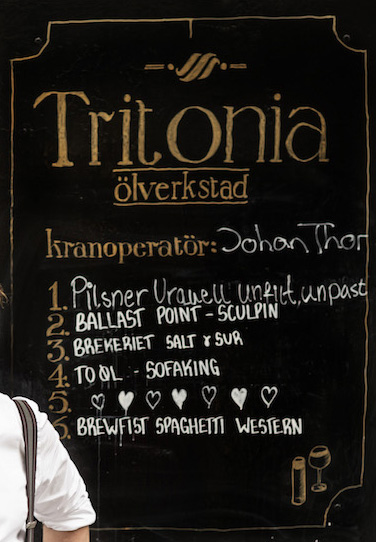 Tritonia
ölverkstad
kranoperatör: Johan Thor
1. Pilsner Urquell unfilt, unpast
2. BALLAST POINT - SCULPIN
3. BREKERIET SALT & SUR
4. TO ØL - SOFAKING
5. ♡ ♥ ♡ ♥ ♡ ♥ ♡
6. BREWFIST SPAGHETTI WESTERN